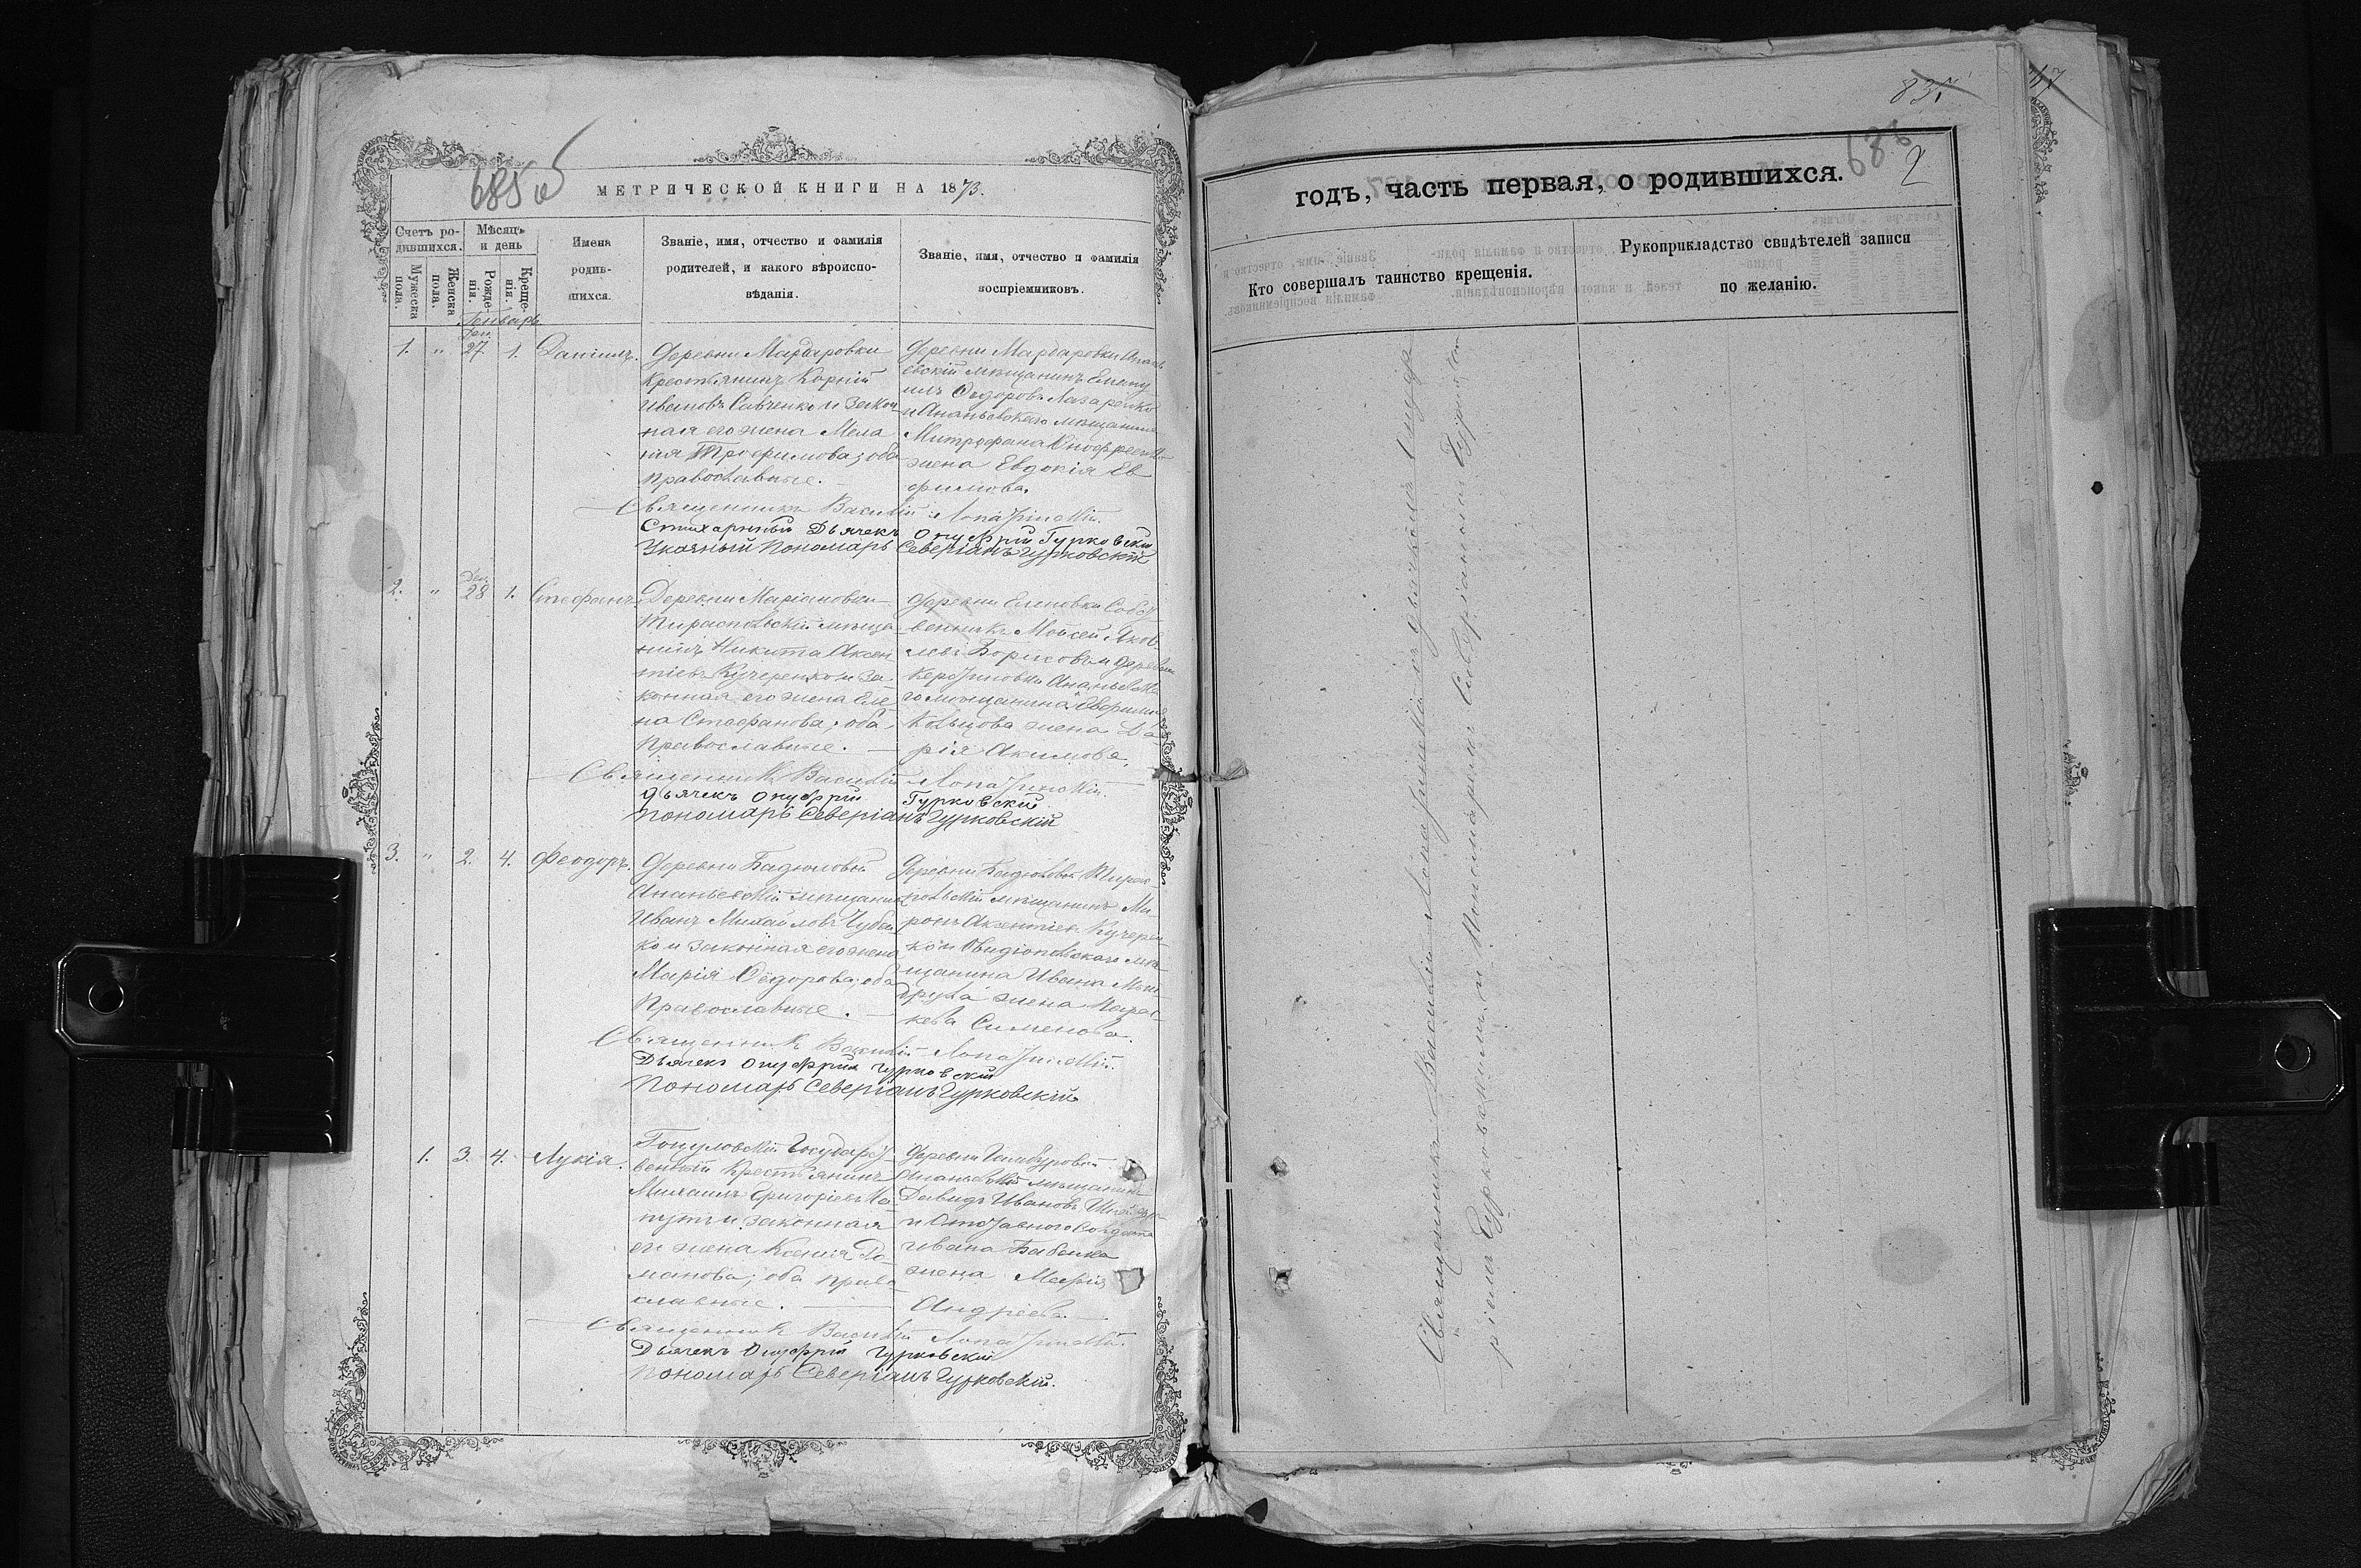 685 об
МЕТРИЧЕСКОЙ КНИГИ НА 1873.
Счетъ ро-
дившихся.
Мѣсяцъ
и день
Мужеска
пола.
Женска
пола.
Рожде
нія.
Креще-
нія.
Имена
родив-
шихся.
Званіе, имя, отчество и фамилія
родителей, и какого вѣроиспо-
вѣданія.
Званіе, имя, отчество и фамилія
воспріемниковъ.
Генварь
1. " Дек. 27. 1. Даніилъ.
Деревни Мардаровки
крестьянинъ Корній
Ивановъ Савченко и закон
ная его жена Мела
нія Трофимова; оба
православные.
Деревни Мардаровки Анань
евскій мѣщанинъ
Ѳедоровъ Лазаренко
и Ананьевскаго мѣщанина
Митрофана
жена Евдокія Ев
фимова.
Священникъ Василій Лопатинскій.
Стихарный Дьячекъ Онуфрій Гурковскій
Указный Пономарь Северіанъ Гурковскій
2. " Дек. 28 1. Стефанъ
Деревни Маріановки
Тираспольскій мѣща
нинъ Никита Аксен
тіевъ Кучеренко и за
конная его жена Еле
на Стефанова; оба
православные.
Деревни Еленовки Собст
венникъ Мойсей Яков
левъ Борисовъ и деревни
Ананьевска
го мѣщанина
Кольцова жена Да
рія Акимова.
Священникъ Василій Лопатинскій.
Дьячекъ Онуфрій Гурковскій
Пономарь Северіанъ Гурковскій
3. " 2. 4. Феодоръ.
Деревни Бадюловой
Ананьевскій мѣщанинъ
Иванъ Михайловъ Чубен
ко и законная его жена
Марія Ѳедорова; оба
Православные.
Деревни Бадюловой Тирас-
польскій мѣщанинъ Ми
ронъ Аксентіевъ Кучерен
ко и Овидіопольскаго мѣ-
щанина Ивана
жена Парас-
кева Сименова.
Священникъ Василій Лопатинскій.
Дьячекъ Онуфрій Гурковскій
Пономарь Северіанъ Гурковскій
1. 3. 4. Лукія.
Государст
венный крестьянинъ
Михаилъ Григоріевъ
и законная
его жена Ксенія Ро
манова; оба право
славные.
Деревни
Ананьевскій мѣщанинъ
Давидъ Ивановъ
и Отставного Солдата
Ивана Бабенка
жена Марія
Андреева.
Священникъ Василій Лопатинскій.
Дьячекъ Онуфрій Гурковскій
Пономарь Северіанъ Гурковскій.
835
47
686
2
годъ, часть первая, о родившихся.
Кто совершалъ таинство крещенія.
Рукоприкладство свидѣтелей записи
по желанію.
Священникъ Василій Лопатинскій съ дьячкомъ Онуф
ріемъ Гурковскимъ и Пономаремъ Северіаномъ Гурковским